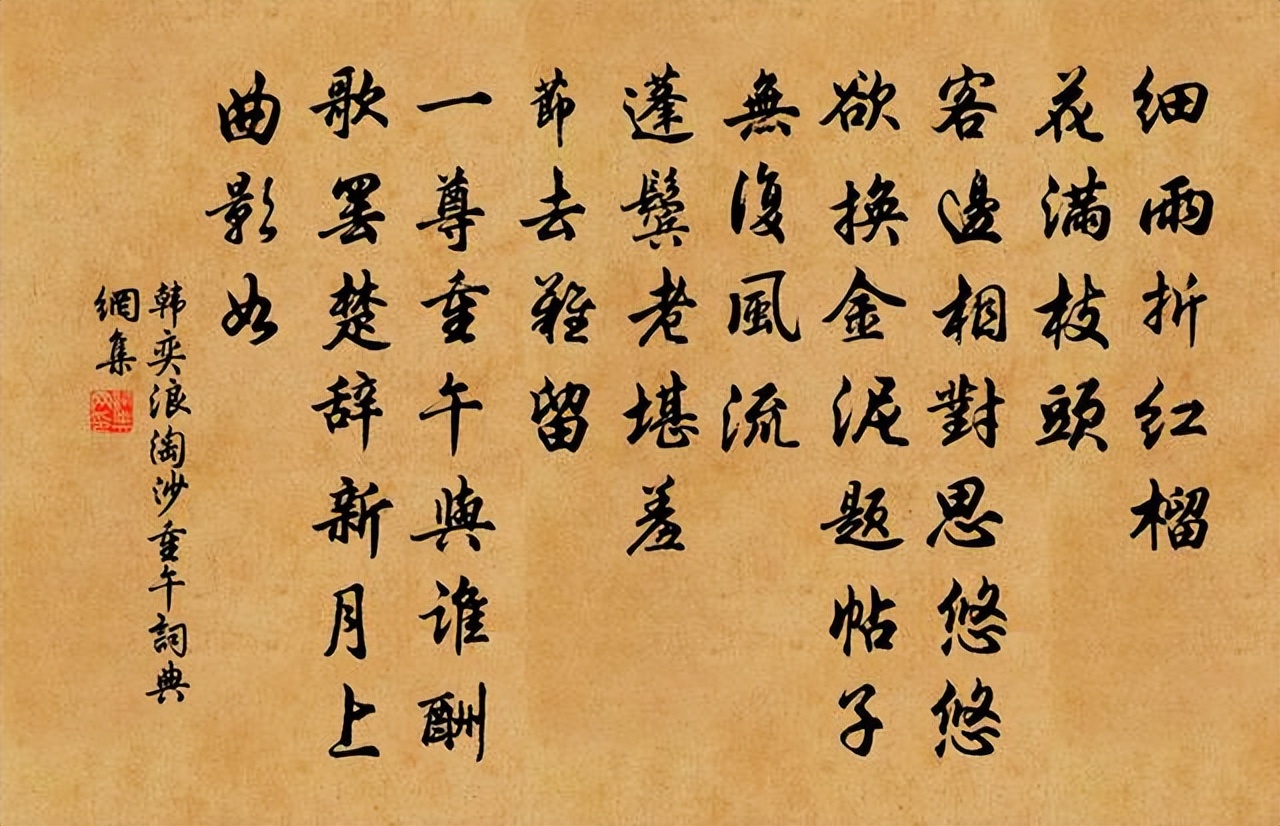 细雨折红榴
花满枝頭
客邊相對思悠悠
欲换金泥题帖子
無復風流
蓬鬓老堪羞
節去難留
一尊重午與谁酬
歌罢楚辞新月上
曲影如
韩奕浪淘沙重午詞典
網集